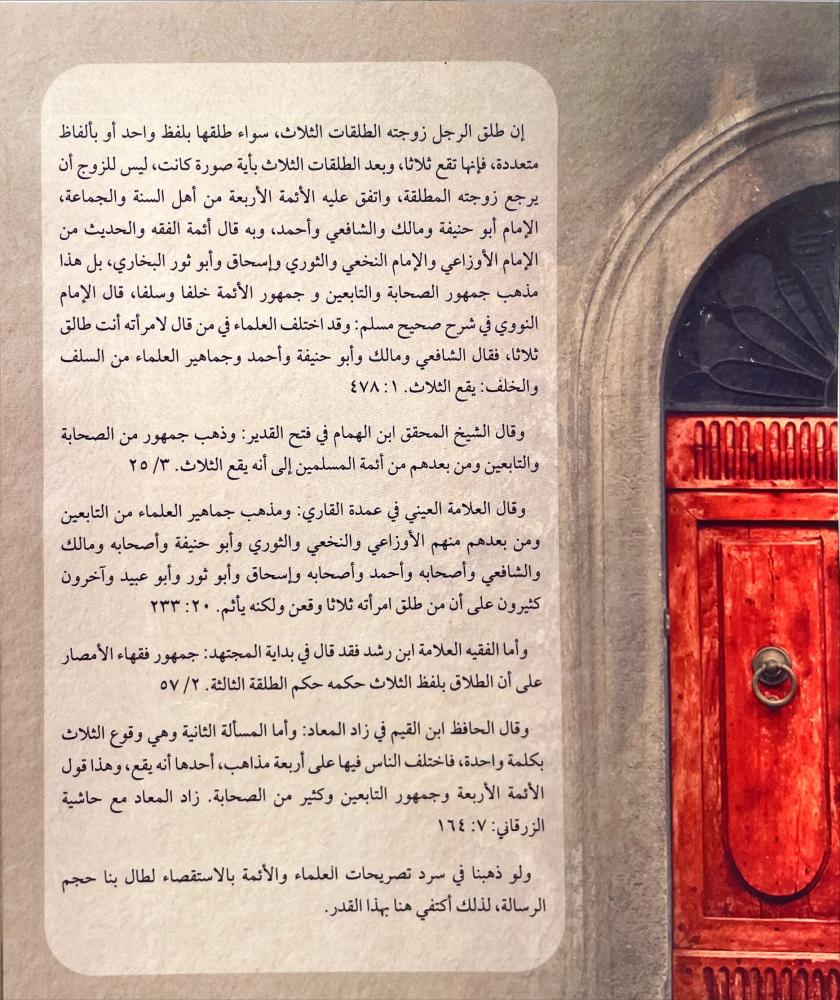 إن طلق الرجل زوجته الطلقات الثلاث، سواء طلقها بلفظ واحد أو بألفاظ
متعددة، فإنها تقع ثلاثا، وبعد الطلقات الثلاث بأية صورة كانت، ليس للزوج أن
يرجع زوجته المطلقة، واتفق عليه الأئمة الأربعة من أهل السنة والجماعة،
الإمام أبو حنيفة ومالك والشافعي وأحمد، وبه قال أئمة الفقه والحديث من
الإمام الأوزاعي والإمام النخعي والثوري وإسحاق وأبو ثور البخاري، بل هذا
مذهب جمهور الصحابة والتابعين و جمهور الأئمة خلفا وسلفا، قال الإمام
النووي في شرح صحيح مسلم: وقد اختلف العلماء في من قال لامرأته أنت طالق
ثلاثا، فقال الشافعي ومالك وأبو حنيفة وأحمد وجماهير العلماء من السلف
والخلف: يقع الثلاث. ١: ٤٧٨
وقال الشيخ المحقق ابن الهمام في فتح القدير: وذهب جمهور من الصحابة
والتابعين ومن بعدهم من أئمة المسلمين إلى أنه يقع الثلاث. ٣/ ٢٥
وقال العلامة العيني في عمدة القاري: ومذهب جماهير العلماء من التابعين
ومن بعدهم منهم الأوزاعي والنخعي والثوري وأبو حنيفة وأصحابه ومالك
والشافعي وأصحابه وأحمد وأصحابه وإسحاق وأبو ثور وأبو عبيد وآخرون
كثيرون على أن من طلق امرأته ثلاثا وقعن ولكنه يأثم. ٢٠: ٢٣٣
وأما الفقيه العلامة ابن رشد فقد قال في بداية المجتهد: جمهور فقهاء الأمصار
على أن الطلاق بلفظ الثلاث حكمه حكم الطلقة الثالثة. ٢/ ٥٧
وقال الحافظ ابن القيم في زاد المعاد: وأما المسألة الثانية وهي وقوع الثلاث
بكلمة واحدة، فاختلف الناس فيها على أربعة مذاهب، أحدها أنه يقع، وهذا قول
الأئمة الأربعة وجمهور التابعين وكثير من الصحابة. زاد المعاد مع حاشية
الزرقاني: ٧: ١٦٤
ولو ذهبنا في سرد تصريحات العلماء والأئمة بالاستقصاء لطال بنا حجم
الرسالة، لذلك أكتفي هنا بهذا القدر.